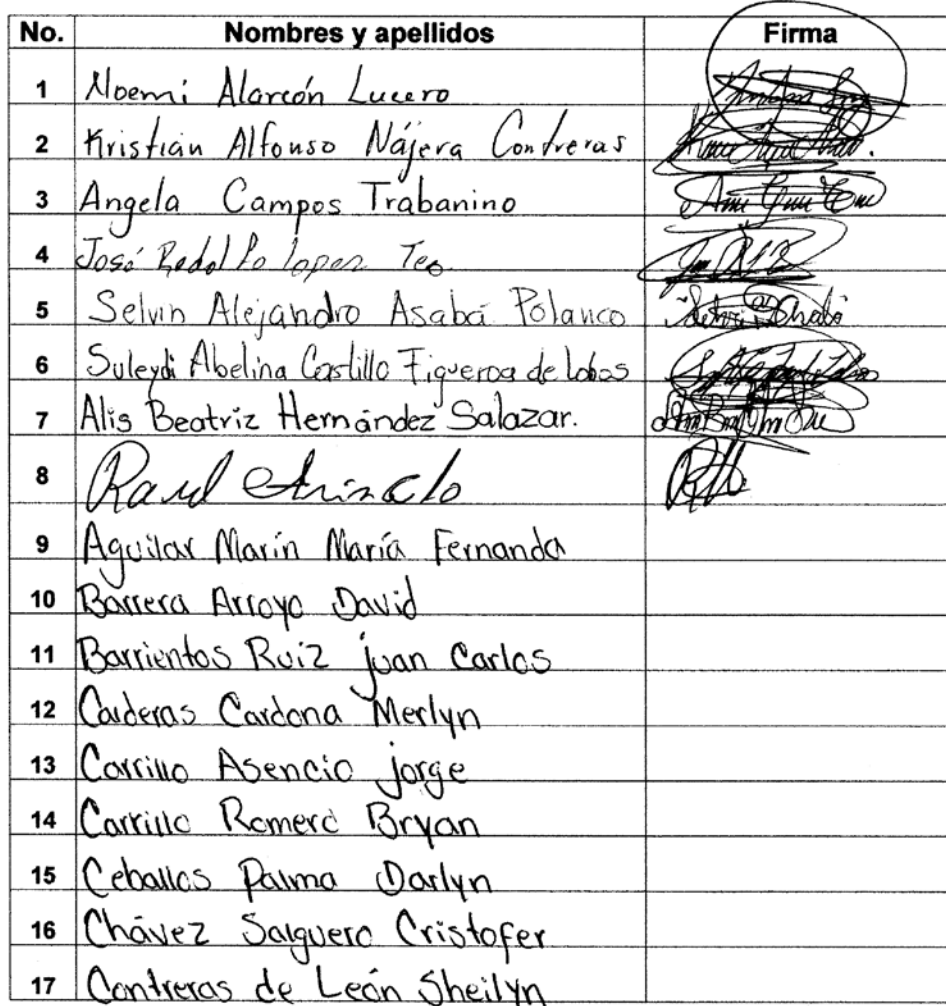 No. Nombres y apellidos Firma
1 Noemi Alarcón Lucero
2 Kristian Alfonso Nájera Contreras
3 Angela Campos Trabanino
4 José Rodolfo lopez Teo
5 Selvin Alejandro Asabá Polanco
6 Suleydi Abelina Castillo Figueroa de Lobos
7 Alis Beatriz Hernández Salazar.
8 Raul
9 Aguilar Marín María Fernanda
10 Barrera Arroyo David
11 Barrientos Ruiz juan Carlos
12 Carderas Cardona Merlyn
13 Carrillo Asencio jorge
14 Carrillo Romero Bryan
15 Ceballos Palma Darlyn
16 Chávez Salguero Cristofer
17 Contreras de León Sheilyn